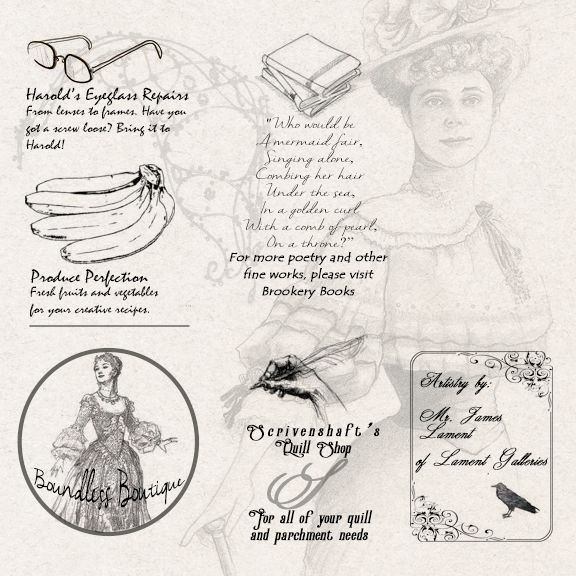 Harold's Eyeglass Repairs
From lenses to frames. Have you
got a screw loose? Bring it to
Harold!
Produce Perfection
Fresh fruits and vegetables
for your creative recipes.
Boundless Boutique
"Who would be
A mermaid fair,
Singing alone,
Combing her hair
Under the sea,
In a golden curl
With a comb of pearl,
On a throne?"
For more poetry and other
fine works, please visit
Brookery Books
Scrivenshaft's
Quill Shop
S
For all of your quill
and parchment needs
Artistry by:
Mr. James
Lament
of Lament Galleries